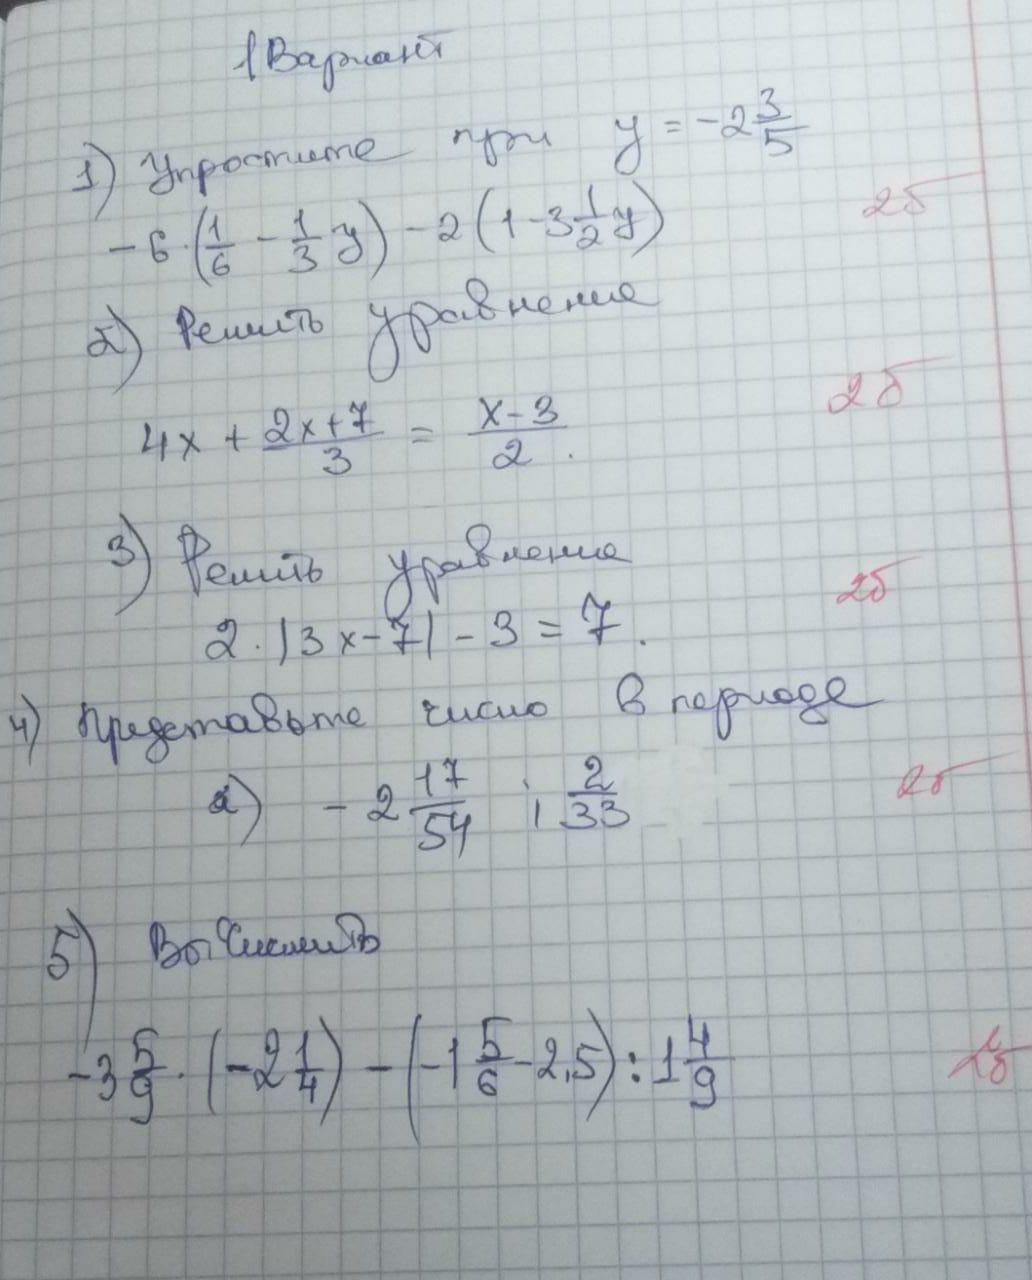 1 Вариант
1) Упростите при y = -2 3/5
-6·(1/6 - 1/3 y) - 2(1 - 3 1/2 y)
2б
2) Решить уравнение
4x + (2x+7)/3 = (x-3)/2.
2б
3) Решить уравнение
2б
2·|3x-7| - 3 = 7.
4) Представьте число в периоде
а) -2 17/54 ; 2/33
2б
5) Вычислить
-3 5/9 · (-2 1/4) - (-1 5/6 - 2,5) : 1 4/9
2б